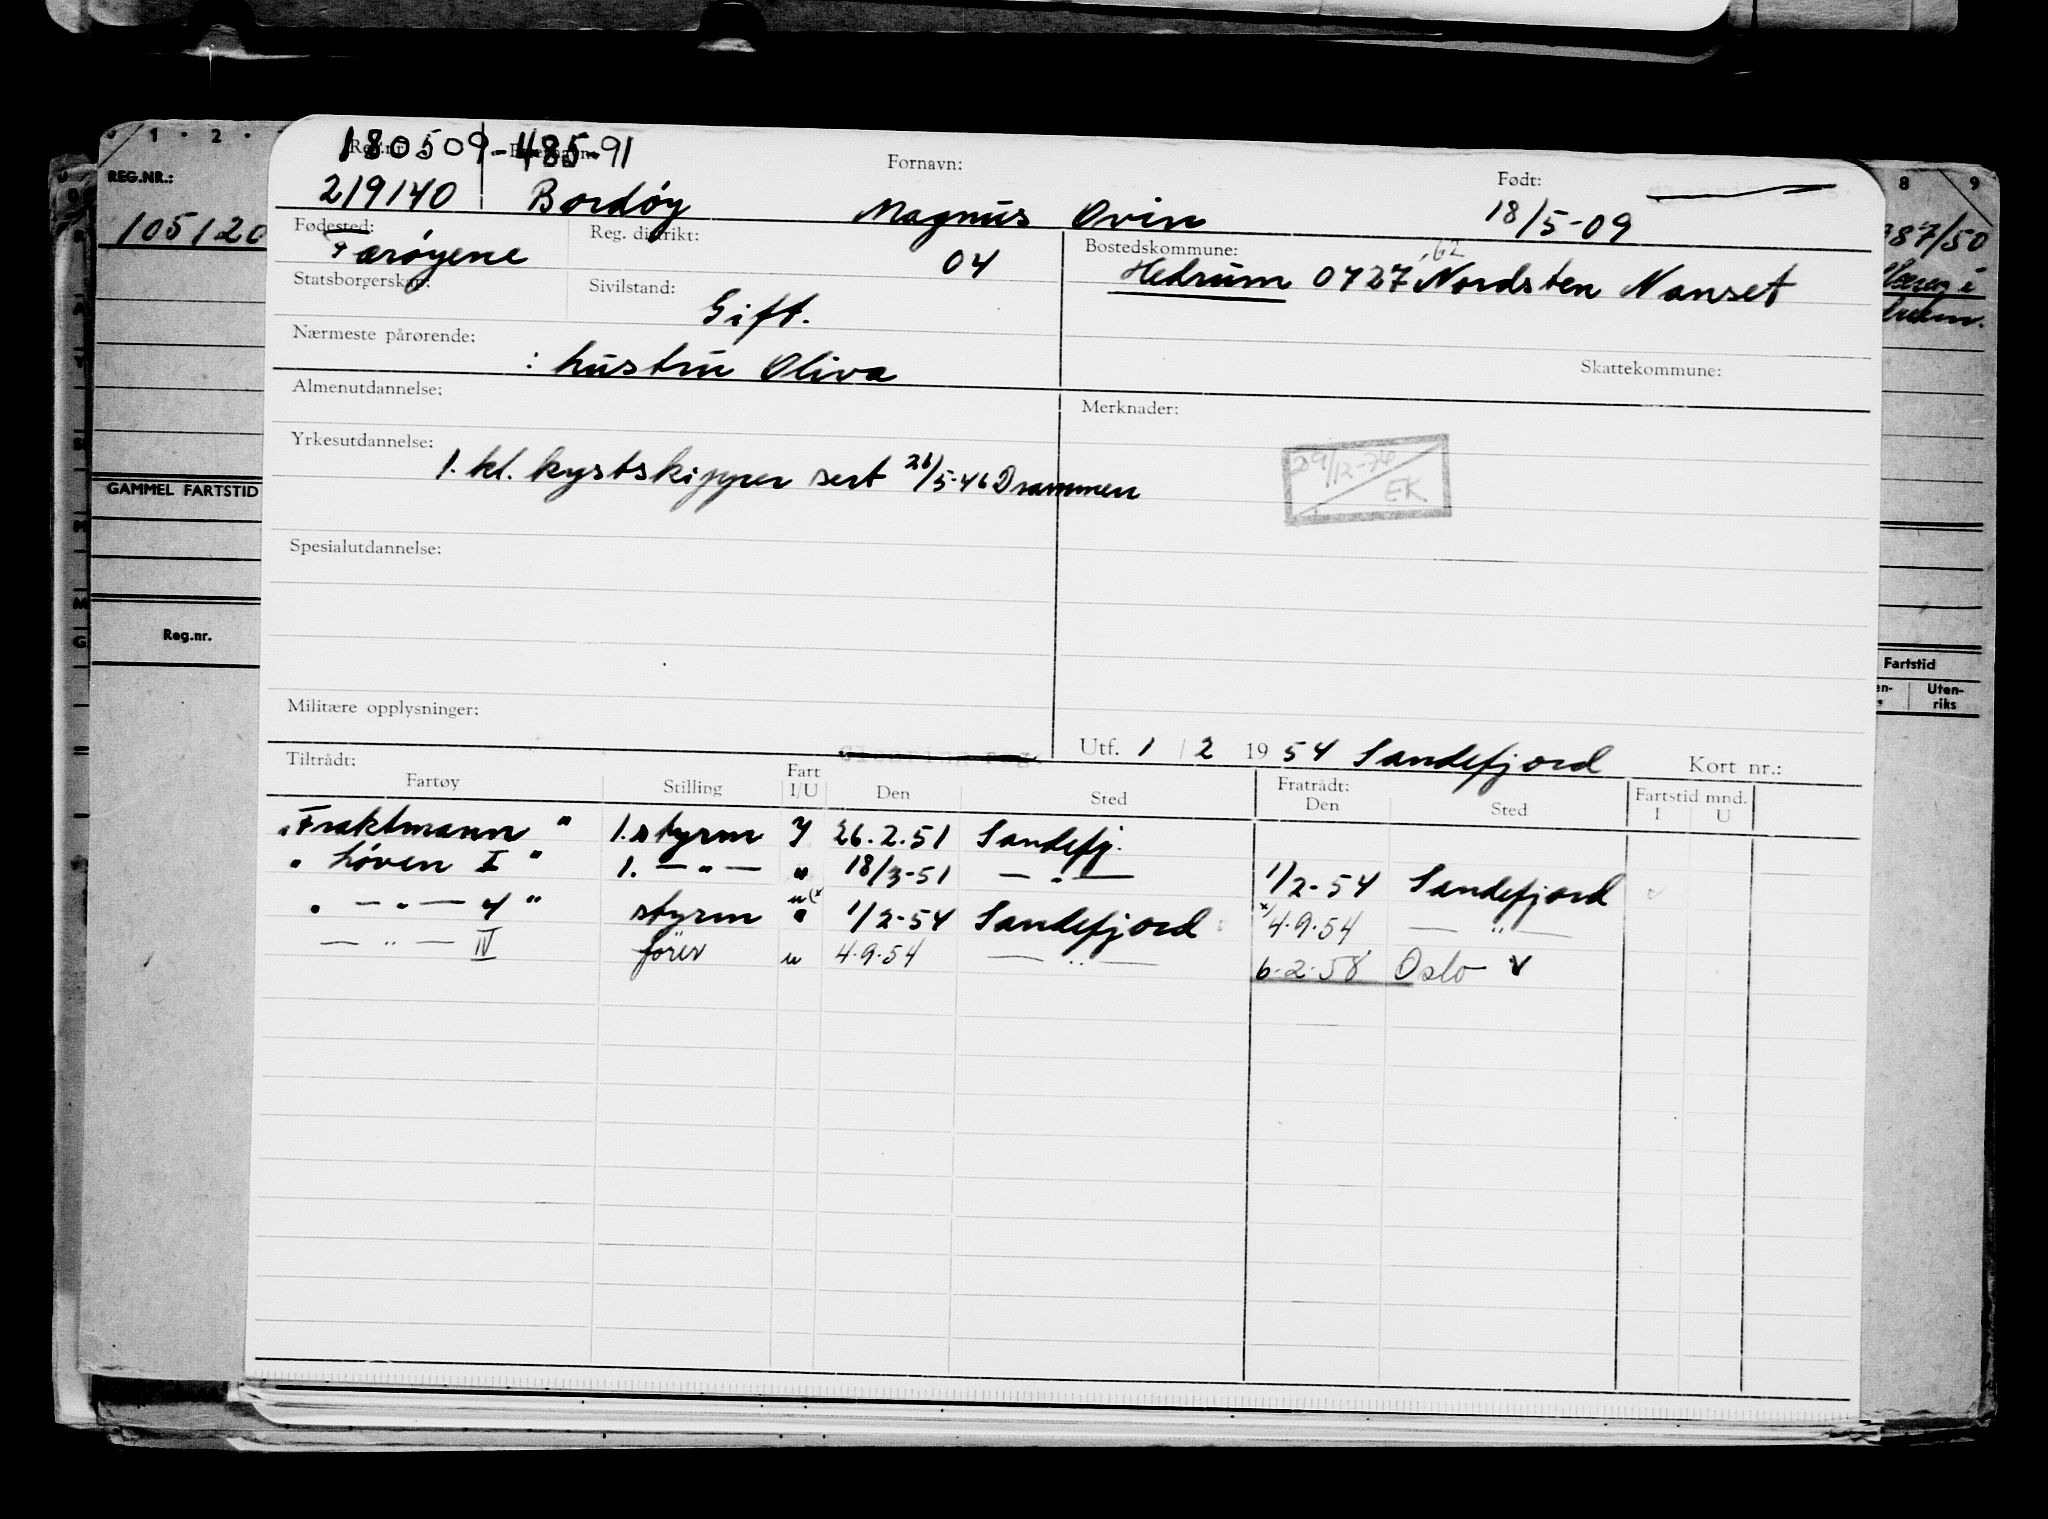 1 · 2 ·
8 9
REG.NR.:
105120
87/50
GAMMEL FARTSTID
Reg.nr.
Fartstid
Uten-
riks
180509-48591
Reg.nr. Etternavn: Fornavn: Født:
219140 Bordøy Magnus Ovin 18/5-09
Fødested: Reg. distrikt: Bostedskommune:
Færøyene 04 Hedrum 0727 Nordsten Nanset
62
Statsborgerskap: Sivilstand:
Gift.
Nærmeste pårørende: Skattekommune:
: hustru Oliva
Almenutdannelse: Merknader:
Yrkesutdannelse:
1. kl. kystskipper sert 26/5-46 Drammen
29/12-74
EK
Spesialutdannelse:
Militære opplysninger:
Utf. 1 / 2 1954 Sandefjord Kort nr.:
Tiltrådt: Fratrådt: Fartstid mnd.
Fartøy Stilling Fart I/U Den Sted Den Sted I U
"Fraktmann" 1. styrm I 26.2.51 Sandefj.
" Løven I " 1. — " — " 18/3-51 — " — 1/2-54 Sandefjord
" — " — " styrm u x " 1/2-54 Sandefjord x/4.9.54 — " —
— " — IV fører u 4.9.54 — " — 6.2.58 Oslo v